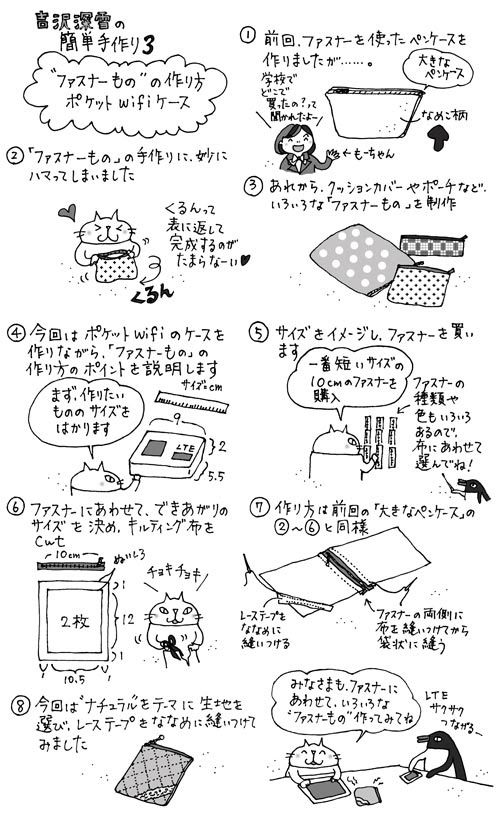 音沢深雪の
簡単手作り3
"ファスナーもの"の作り方
ポケットWifiケース
① 前回、ファスナーを使ったペンケースを
作りましたが……。
大きな
ペンケース
学校で
どこで
買ったの?って
聞かれたよー
なめこ柄
もーちゃん
②「ファスナーもの」の手作りに、妙に
ハマってしまいました
くるんって
表に返して
完成するのが
たまらなーい♥
くるん
③ あれから、クッションカバーやポーチなど、
いろいろな「ファスナーもの」を制作
④ 今回はポケットWifiのケースを
作りながら、「ファスナーもの」の
作り方のポイントを説明します
サイズcm
まず、作りたい
もののサイズを
はかります
9
LTE
2
5.5
⑤ サイズをイメージし、ファスナーを買い
ます
一番短いサイズの
10cmのファスナーを
購入
ファスナーの
種類や
色もいろいろ
あるので、
布にあわせて
選んでね!
⑥ ファスナーにあわせて、できあがりの
サイズを決め、キルティング布を
cut
10cm
ぬいしろ
チョキチョキ
1
2枚
12
1
1
10.5
1
⑦ 作り方は前回の「大きなペンケース」の
②〜⑥と同様
レーステープを
ななめに
縫いつける
ファスナーの両側に
布を縫いつけてから
袋状に縫う
⑧ 今回は"ナチュラル"をテーマに生地を
選び、レーステープをななめに縫いつけて
みました
みなさまも、ファスナーに
あわせて、いろいろな
"ファスナーもの"作ってみてね
LTE
サクサク
つながる〜